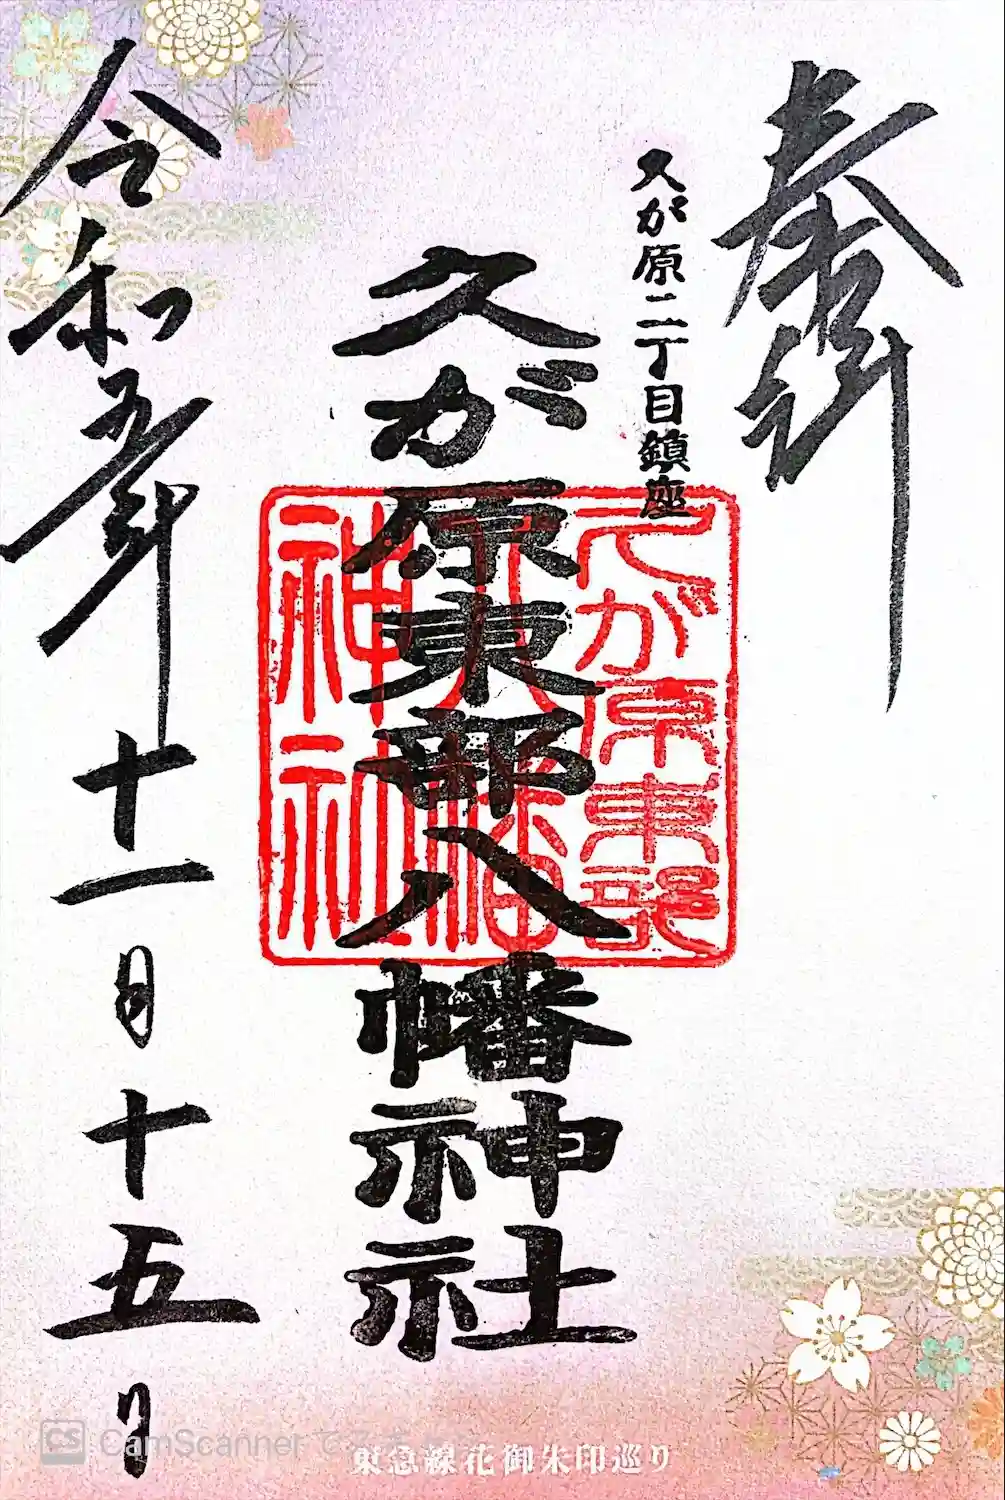 奉拝
久が原二丁目鎮座
久が原東部八幡神社
久が原東部
八幡
神社
令和五年十一月十五日
東急線花御朱印巡り
CS CamScanner で